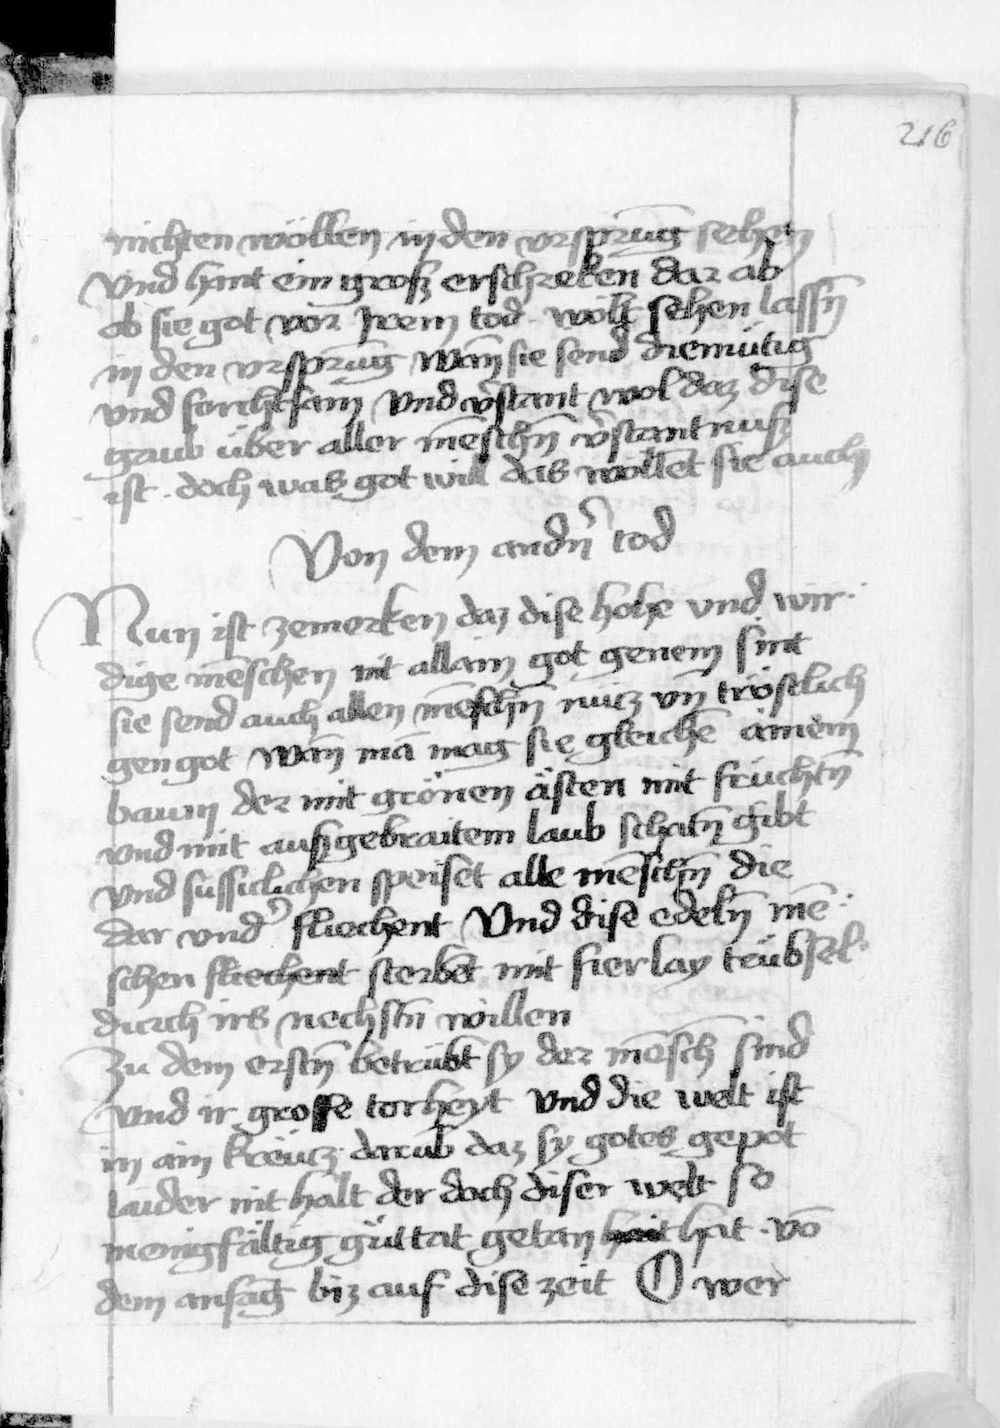 216
nichten wöllen in den vrsprūg sehen
vnd hant ein groß erschreken dar ab
ob sie got vor irem tod wölt sehen lassn̄
in den vrsprūg wan̄ sie send diemütig
vnd forchtsam vnd v̓stant wol daz dise
gaub über aller mēschn̄ v̓stantnuß
ist · doch was got will das wöllent sie auch
Von dem andn̄ tod
Nun ist zemerken daz dise hohe vnd wir·
dige mēschen nit allain got genem sint
sie send auch allen mēschn̄ nucz vn̄ tröstlich
gen got wan̄ mā mag sie gleichē ainem
baum der mit grönen ästen mit früchtn̄
vnd mit außgebraitem laub schatn̄ gibt
vnd sussiclichen speiset alle mēschn̄ die
dar vnd̓ fliechent Vnd dise edeln̄ mē·
schen fliechent sterbēt mit fierlay trübsel·
durch irs nechstn̄ willen
Zu dem erstn̄ betrübt sy der mēsch sünd
vnd ir grosse torheyt vnd die welt ist
in ain kreücz darūb daz sy gotes gepot
laider nit halt der doch diser welt so
menigfältig güttat getan hat · vō
dem anfāg biz auf dise zeit O wer